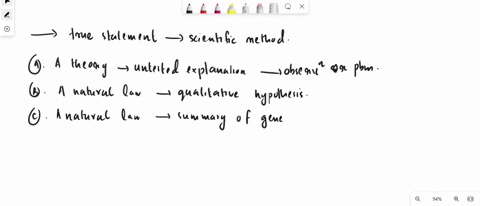 → true statement → scientific method.
(A). A theory → untested explanation → observⁿ or phm.
(B). A natural law → qualitative hypothesis.
(C). A natural law → summary of gene
94%